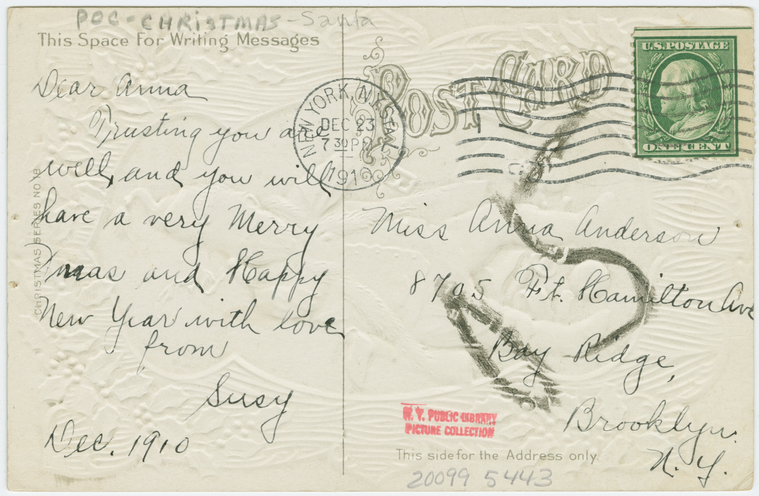 POC-CHRISTMAS-Santa
This Space For Writing Messages
Dear Anna
Trusting you are
well, and you will
have a very Merry
Xmas and Happy
New Year with love
from
Susy
Dec. 1910
CHRISTMAS SERIES NO.
POST CARD
NEW YORK, N.Y.
DEC 23
7 30 P
1910
U.S. POSTAGE
ONE CENT
Miss Anna Anderson
8705 Ft. Hamilton Ave
Bay Ridge,
Brooklyn.
N.Y.
N. Y. PUBLIC LIBRARY
PICTURE COLLECTION
This side for the Address only.
20099 5443